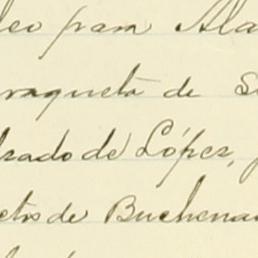 leo para Ala
vaqueta de S
rado de López,
ctos de Buchena